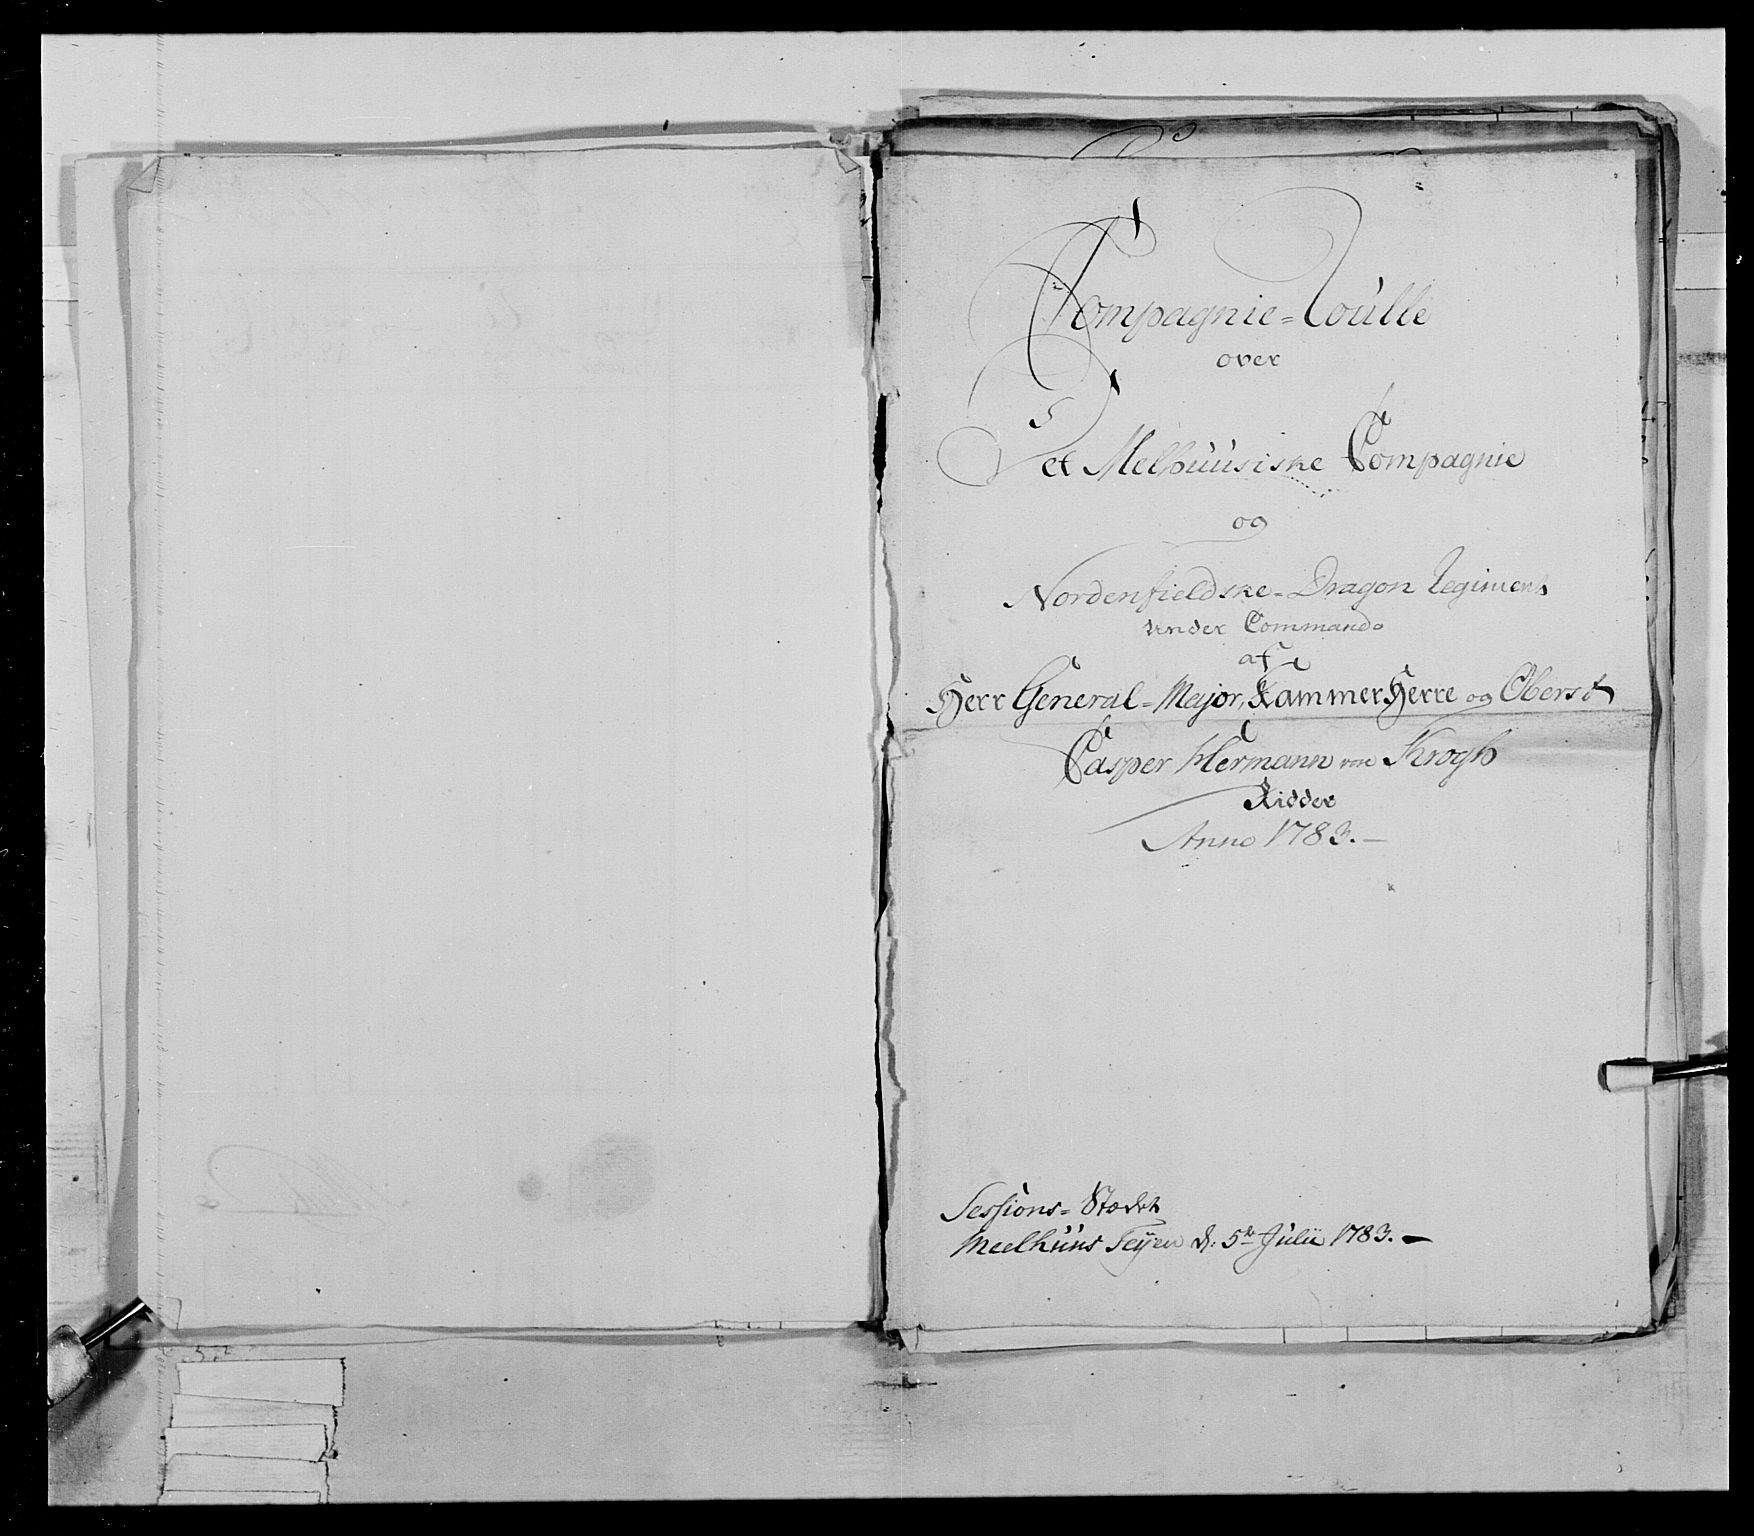 Compagnie=Roulle
over
Det Melhuusiske Compagnie
og
Nordenfieldske-Dragon Regiment
under Commando
af
Herr General=Major, KammerHerre og Oberst
Casper Hermann von Krogh
Ridder
Anno 1783.—
Sessions=Stædet
Meelhuus d: 5te Julii 1783.—